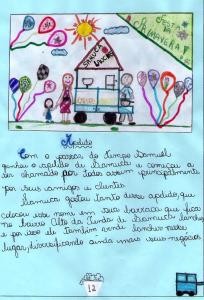 FESTA
DA
PRIMAVERA!
Apelido
Com o passar do tempo Samuel
ganhou o apelido de Samuca e começou a
ser chamado por todos assim principalmente
por seus amigos e clientes.
Samuca gostou tanto desse apelido, que
colocou esse nome em sua barraca que fica
no bairro Alto da
e por isso ele também vende lanches nesse
lugar, diversificando ainda mais seus negócios.
12